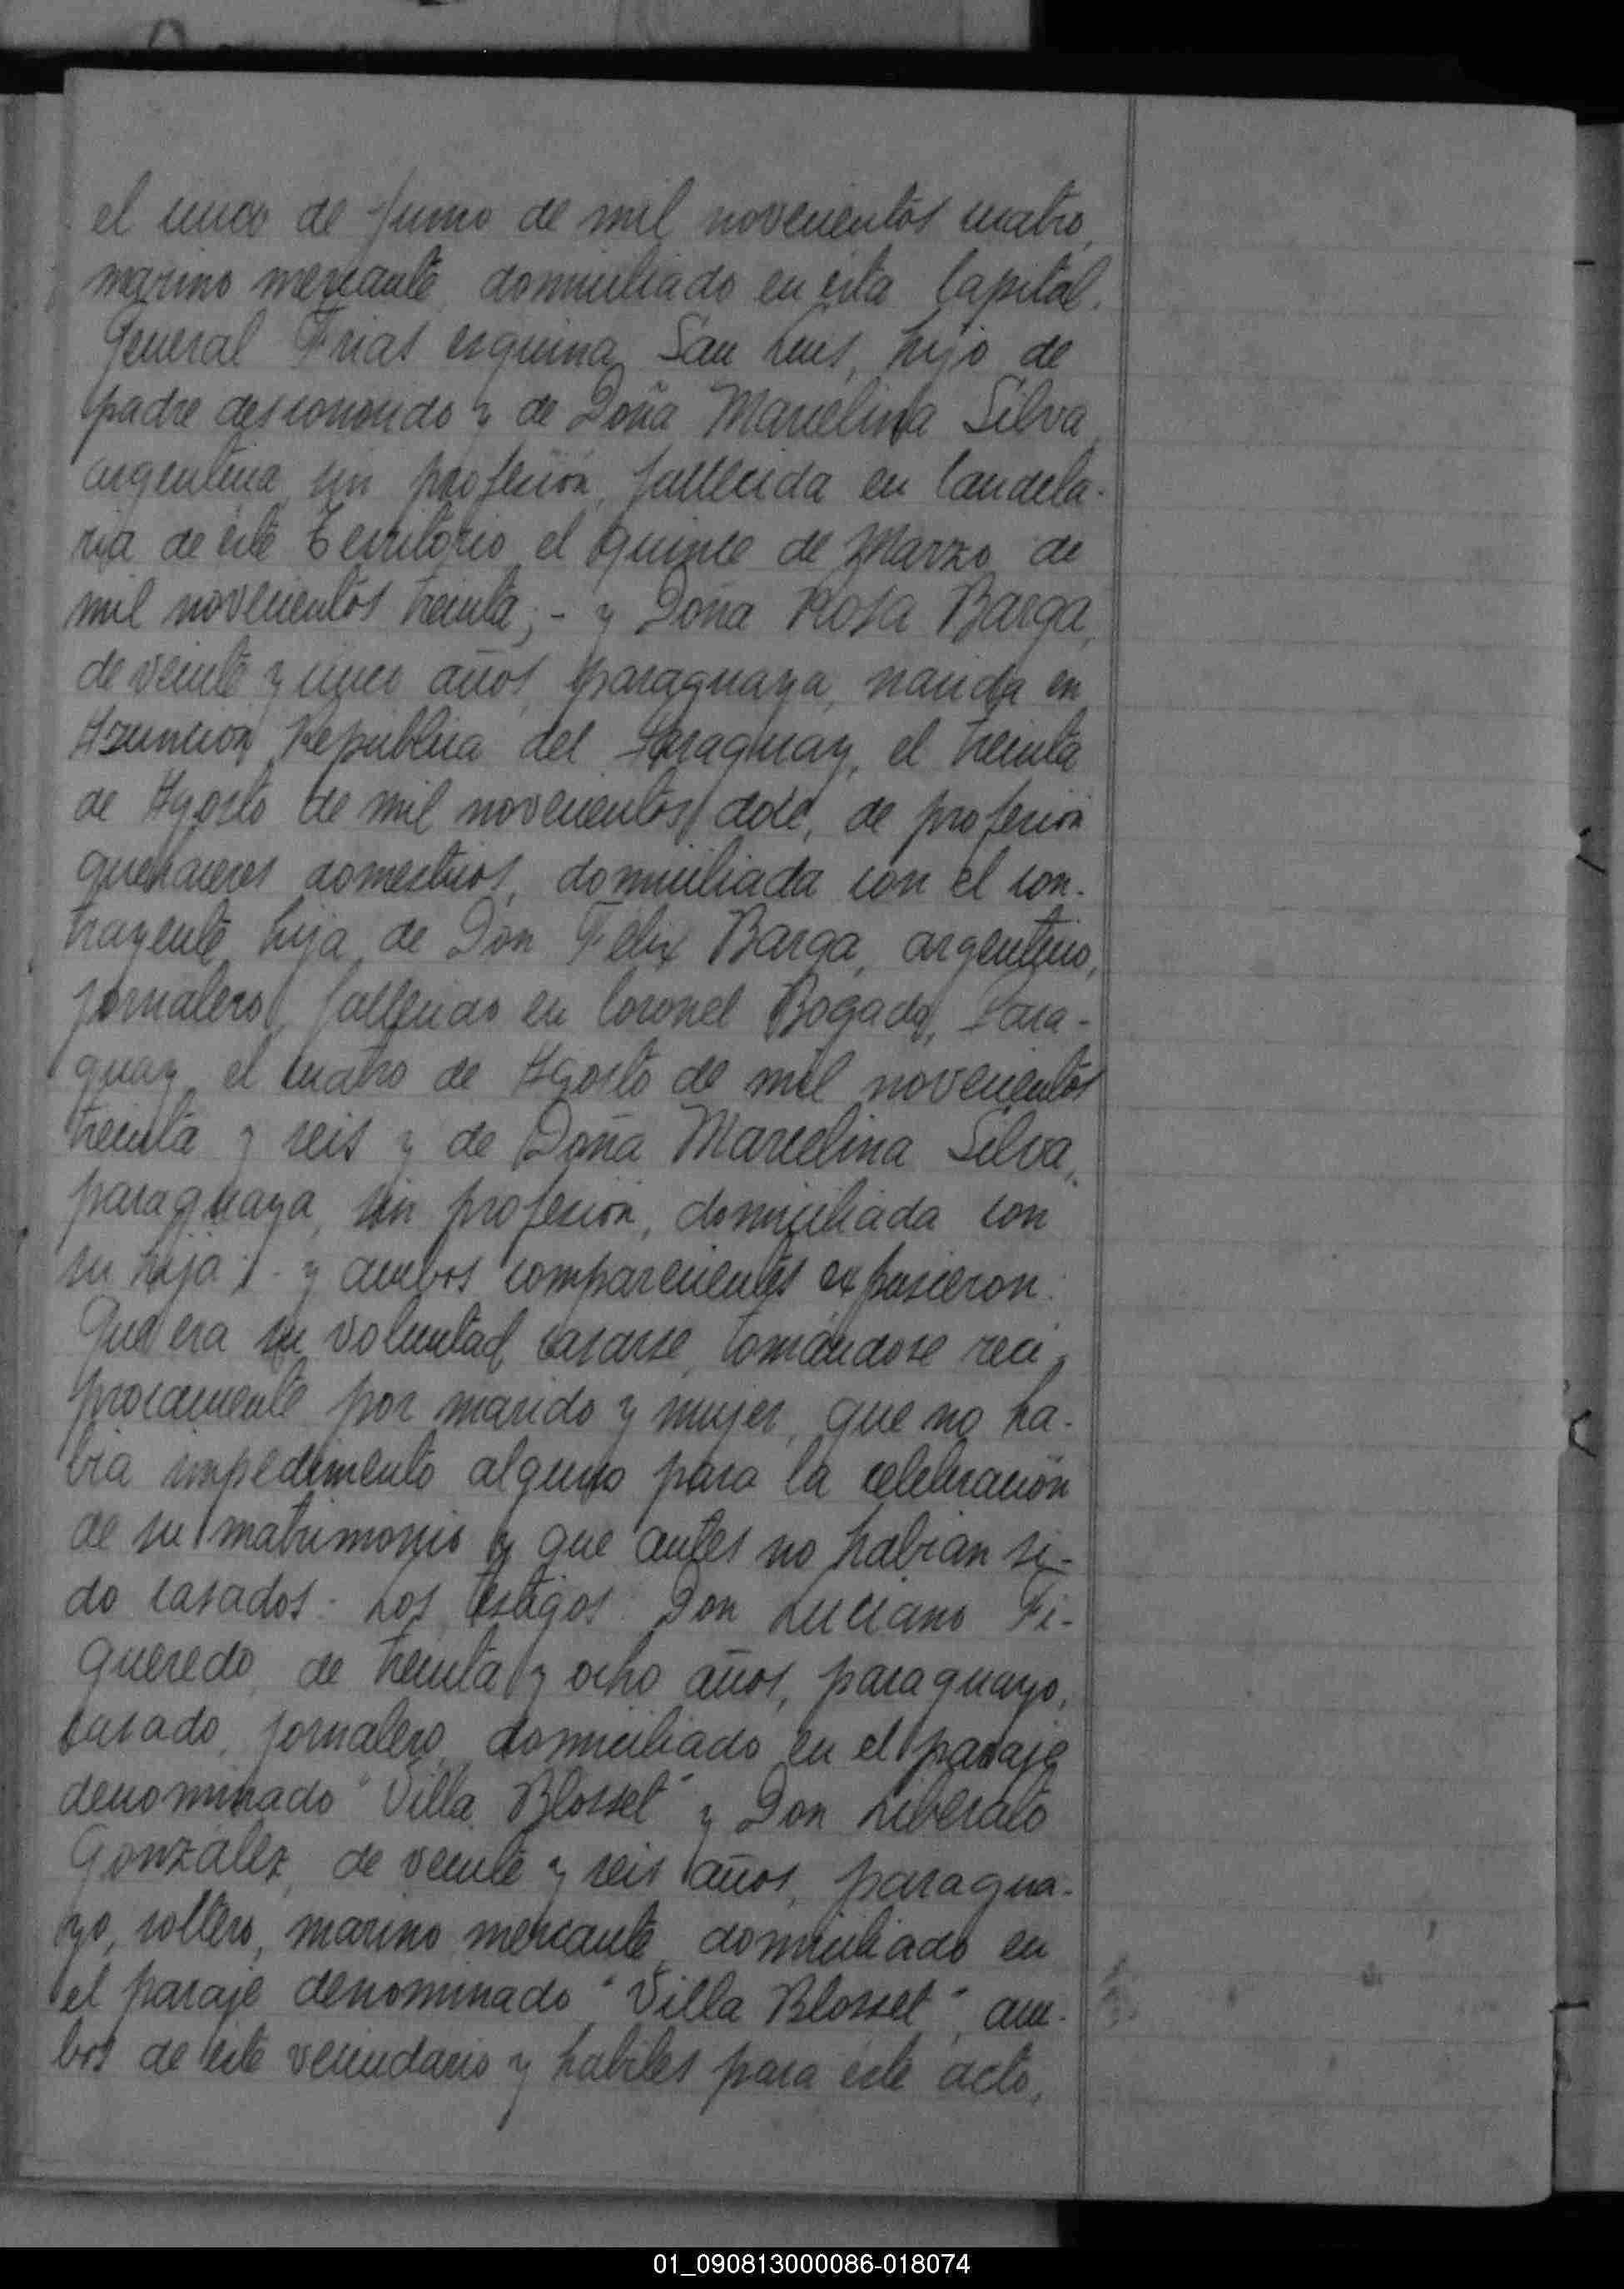 el cinco de Junio de mil novecientos cuatro,
marino mercante, domiciliado en esta Capital,
General Frias esquina San Luis, hijo de
padre desconocido y de Doña Marcelina Silva,
argentina, sin profesión, fallecida en Candela-
ria de éste Territorio el quince de Marzo de
mil novecientos treinta; - y Doña Rosa Barga,
de veinte y cinco años, paraguaya, nacida en
Azuncion, Republica del Paraguay, el treinta
de Agosto de mil novecientos doce, de profesión
quehaceres domesticos, domiciliada con el con-
trayente, hija de Don Felix Barga, argentino,
jornalero, fallecido en Coronel Bogado, Para-
guay, el cuatro de Agosto de mil novecientos
treinta y seis y de Doña Marcelina Silva,
paraguaya, sin profesión, domiciliada con
su hija; - y ambos comparecientes expusieron:
Que era su voluntad casarse, tomándose reci-
procamente por marido y mujer, que no ha-
bia impedimento alguno para la celebración
de su matrimonio y que antes no habian si-
do casados. Los testigos: Don Luciano Fi-
queredo, de treinta y ocho años, paraguayo,
casado, jornalero, domiciliado en el paraje
denominado "Villa Blosset" y Don Liberato
González, de veinte y seis años, paragua-
yo, soltero, marino mercante, domiciliado en
el paraje denominado "Villa Blosset", am-
bos de éste vecindario y habiles para éste acto,
01_090813000086-018074